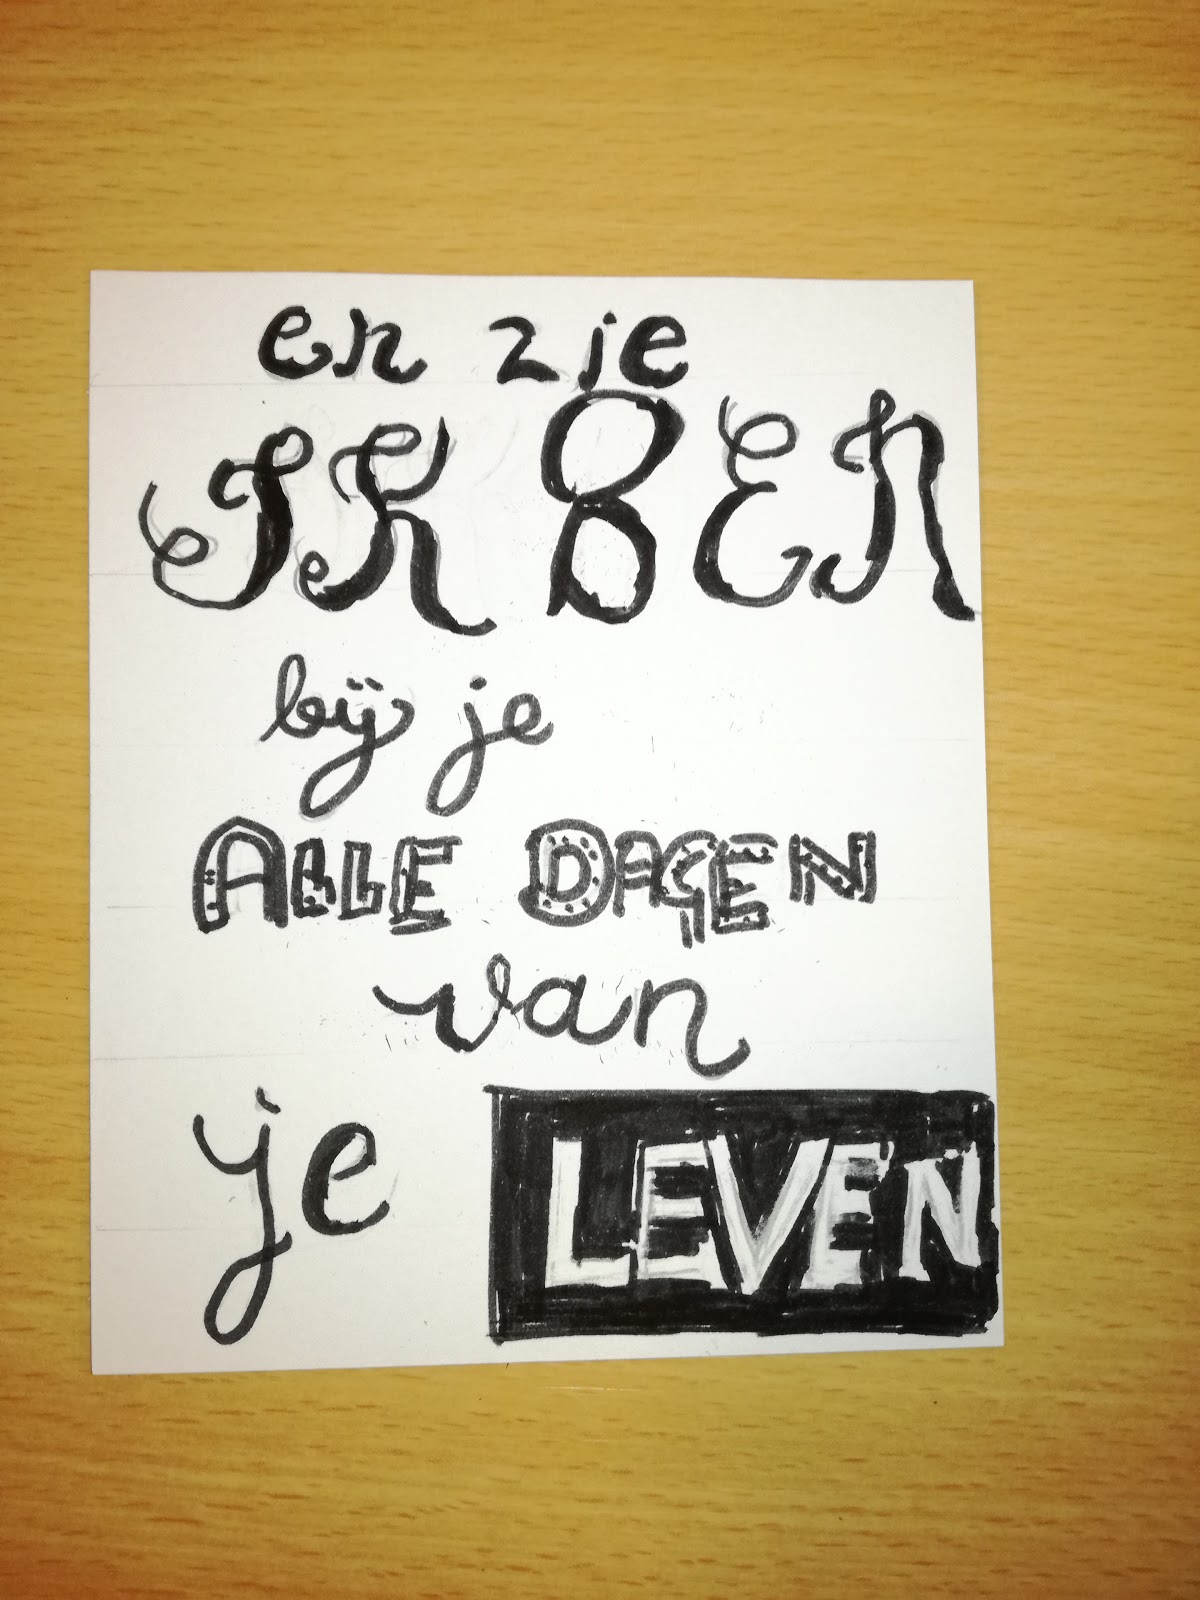 en zie
IK BEN
bij je
ALLE DAGEN
van
je LEVEN